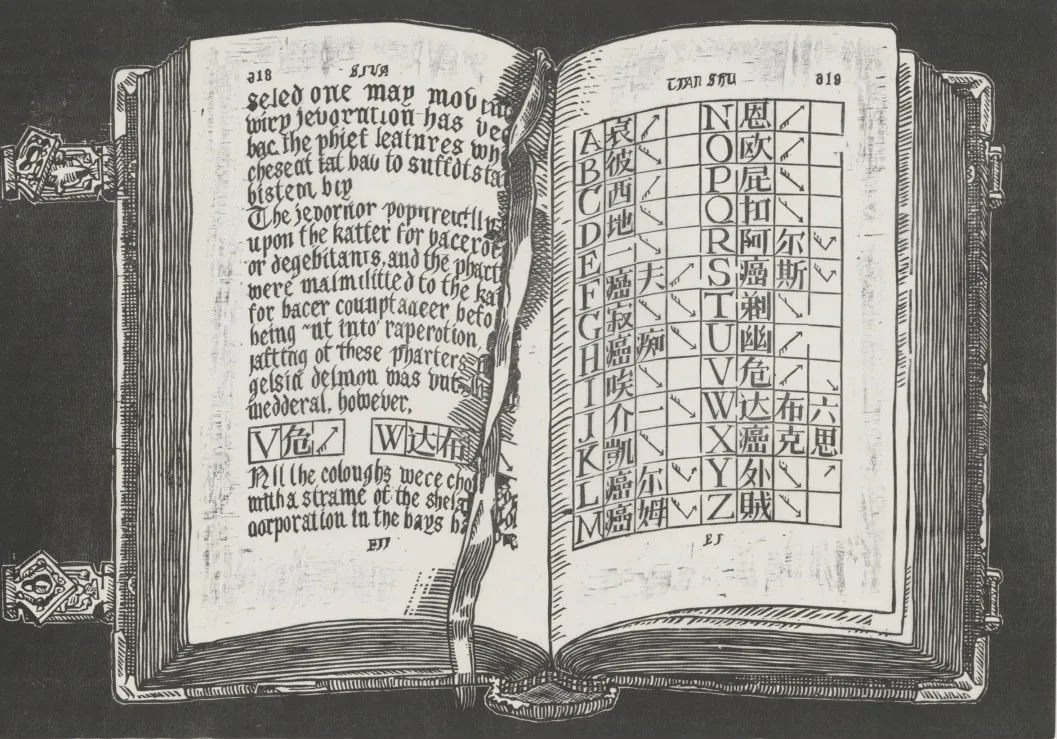 seled one may mov
wiry jevorution has ve
bac. the phief leatnres wh
cheseat tat bau to suffotsta
bistem, biy
The jepornor popureutlly
upon the katter for pacerot
or degebitants, and the phart
were malmilitted to the ka
for bacer counptaqeer befo
being nt into raperotion,
jafting of these pharters
gelsia delmon was put
medderal, however,
V 危 ↗ W 达 布
All the coloughs wece cho
mitha strame ot the shel
oorporation in the bays h
TIAN SHU
A 哀 ↗ N 恩 ↗
B 彼 ↘ O 欧 ↗
C 西 ↗ P 屁 ↘
D 地 ↘ Q 扣 ↘
E 一 ↘ R 阿 尔
F 癌 夫 ↗ S 癌 斯
G 寂 ↘ ↘ T 剃 ↘
H 癌 痴 ↘ U 幽 ↗
I 唉 ↘ V 危 ↗ ↘
J 介 一 ↘ W 达 布 六
K 凯 ↘ X 癌 克 思
L 癌 尔 Y 外 ↘ ↗
M 癌 姆 Z 贼 ↘